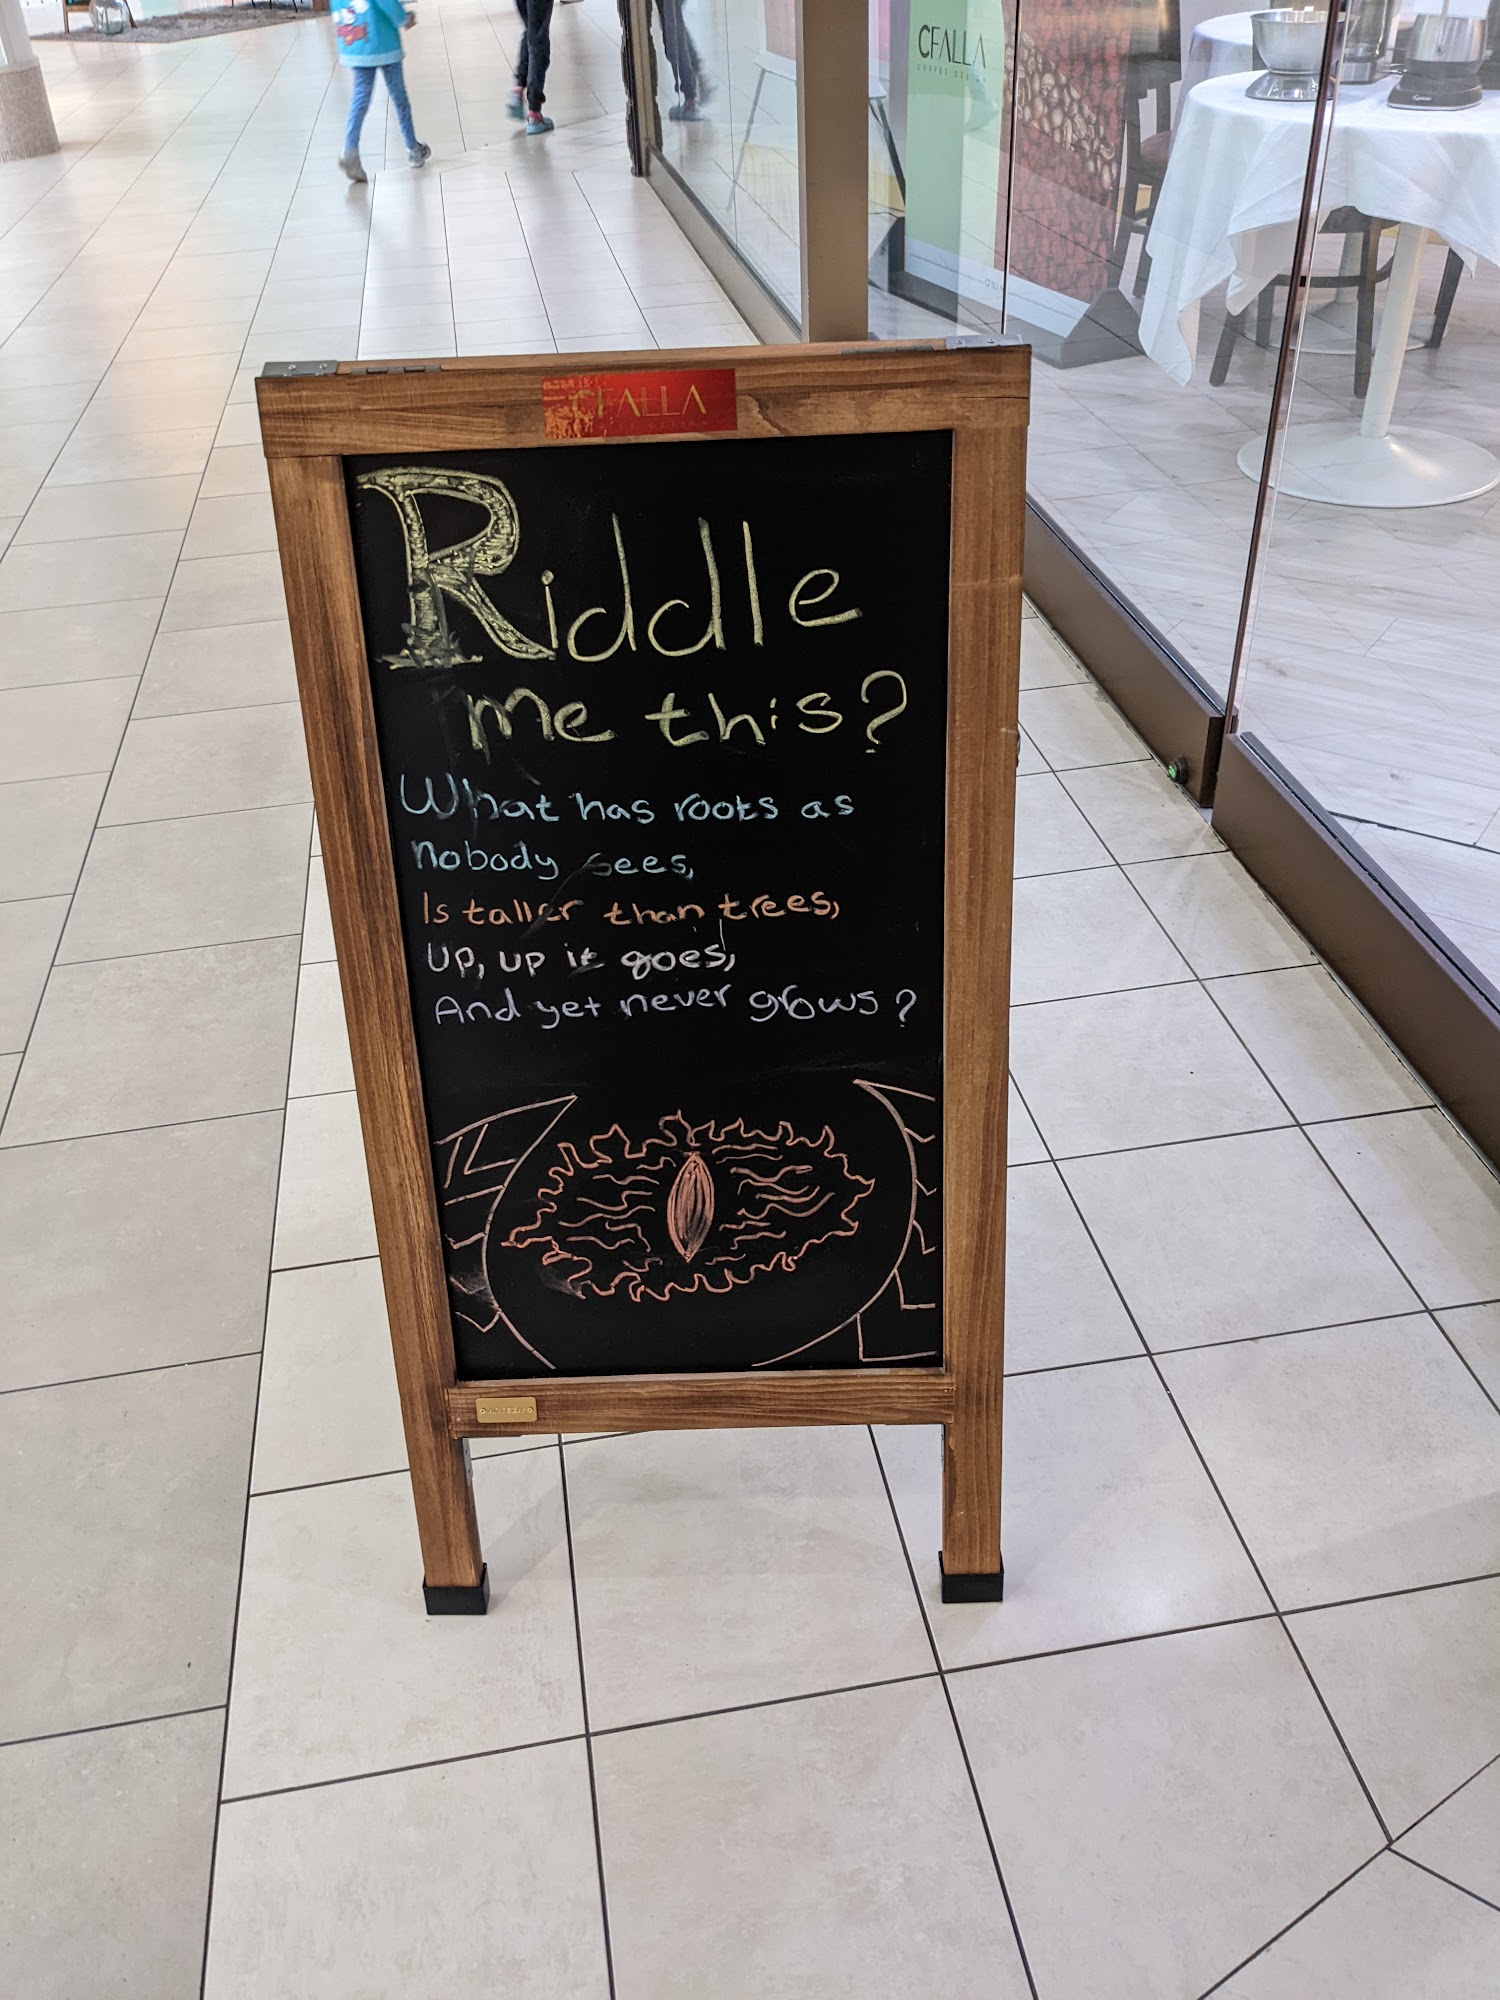 CFALLA
COFFEE DESIGN
CFALLA
Riddle
me this?
What has roots as
nobody sees,
Is taller than trees,
Up, up it goes,
And yet never grows?
ARTEZA